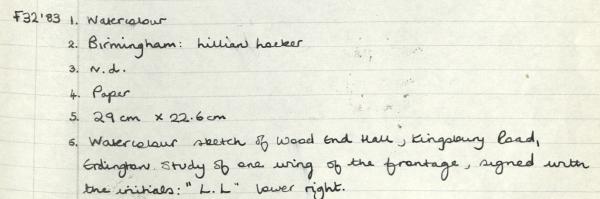 F32'83 1. Watercolour
2. Birmingham: Lillian Locker
3. N.d.
4. Paper
5. 29cm x 22.6cm
6. Watercolour sketch of Wood End Hall, Kingsbury Road,
Erdington. Study of one wing of the frontage, signed with
the initials: "L.L" lower right.